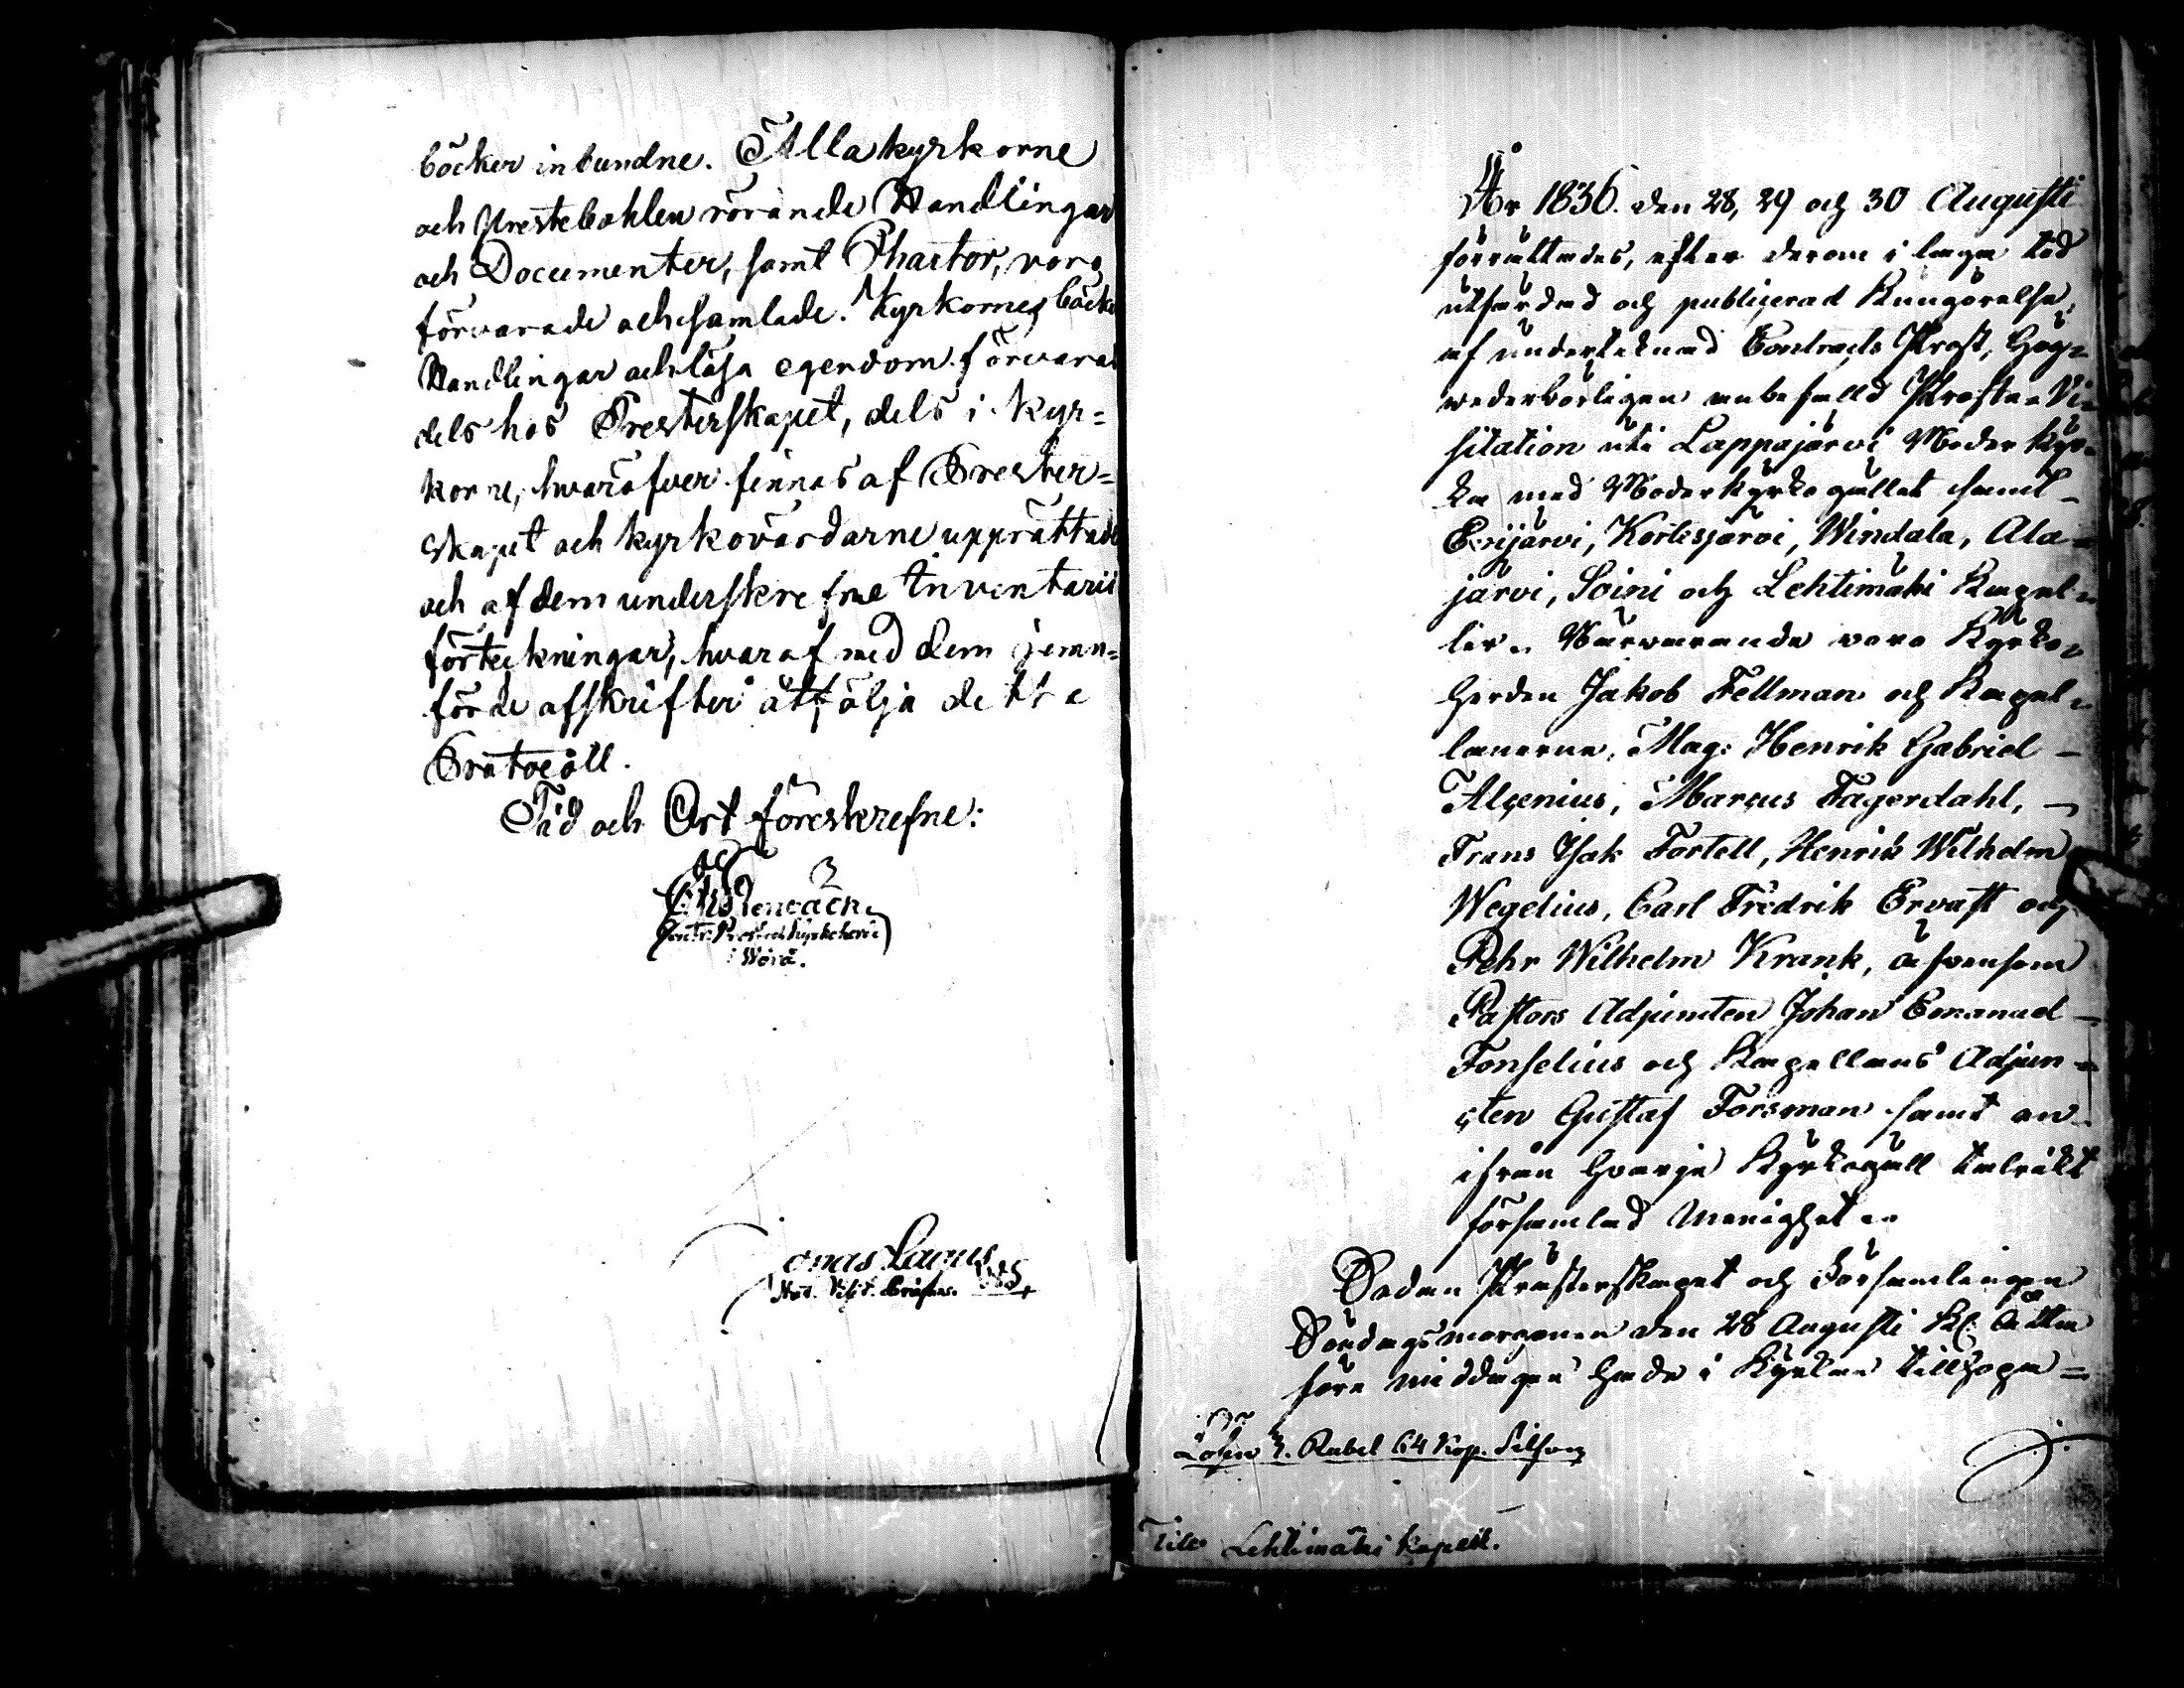 böcker inbundne. Alla kyrkorne
och Prestebohlen rörande Handlingar
och Documenter, samt Chartor, voro
förvarade och samlade. Kyrkornes böcker
Handlingar och lösa egendom förvaras
dels hos Presterskapet, dels i Kyr=
korne, hvaröfver finnas af Prester=
skapet och kyrkovärdarne upprättade
och af dem underskrefne Inventarii
förteckningar, hvaraf med dem jemn=
förde afskrifter åtfölja detta
Protocoll.
Tid och Ort föreskrefne:
Contr: Prost och Kyrkoherde
i Wörå.
Jonas Lagus
Not. Visit.
År 1836. den 28, 29 och 30 Augusti
förrättades, efter derom i laga tid
utfärdad och publicerad Kungörelse,
af undertecknad Contracts Prost, Hög=
wederbörligen anbefalld Prosta=Vi=
sitation uti Lappajärvi Moderkyr=
ka med Moderkyrkogället samt
Evijärvi, Kortesjärvi, Windala, Ala=
järvi, Soini och Lehtimäki Kapel=
ler. Närwarande voro Kyrko=
Herden Jakob Fellman och Kapel=
lanerne, Mag: Henrik Gabriel
Alcenius, Marcus Fagerdahl,
Frans Isak Fortell, Henrik Wilhelm
Wegelius, Carl Fredrik Ervast och
Pehr Wilhelm Krank, äfvensom
Pastors Adjuncten Johan Emanuel
Fonselius och Kapellans Adjun=
cten Gustaf Forsman samt en
ifrån hvarje Kyrkogäll talrikt
församlad Menighet.
Sedan Prästerskapet och Församlingen
Söndagsmorgonen den 28 Augusti Kl: Åtta
före middagen hade i Kyrkan tillhopa=
Lösen 3. Rubel 64 Kop. Silfver
Till Lehtimäki Kapell.